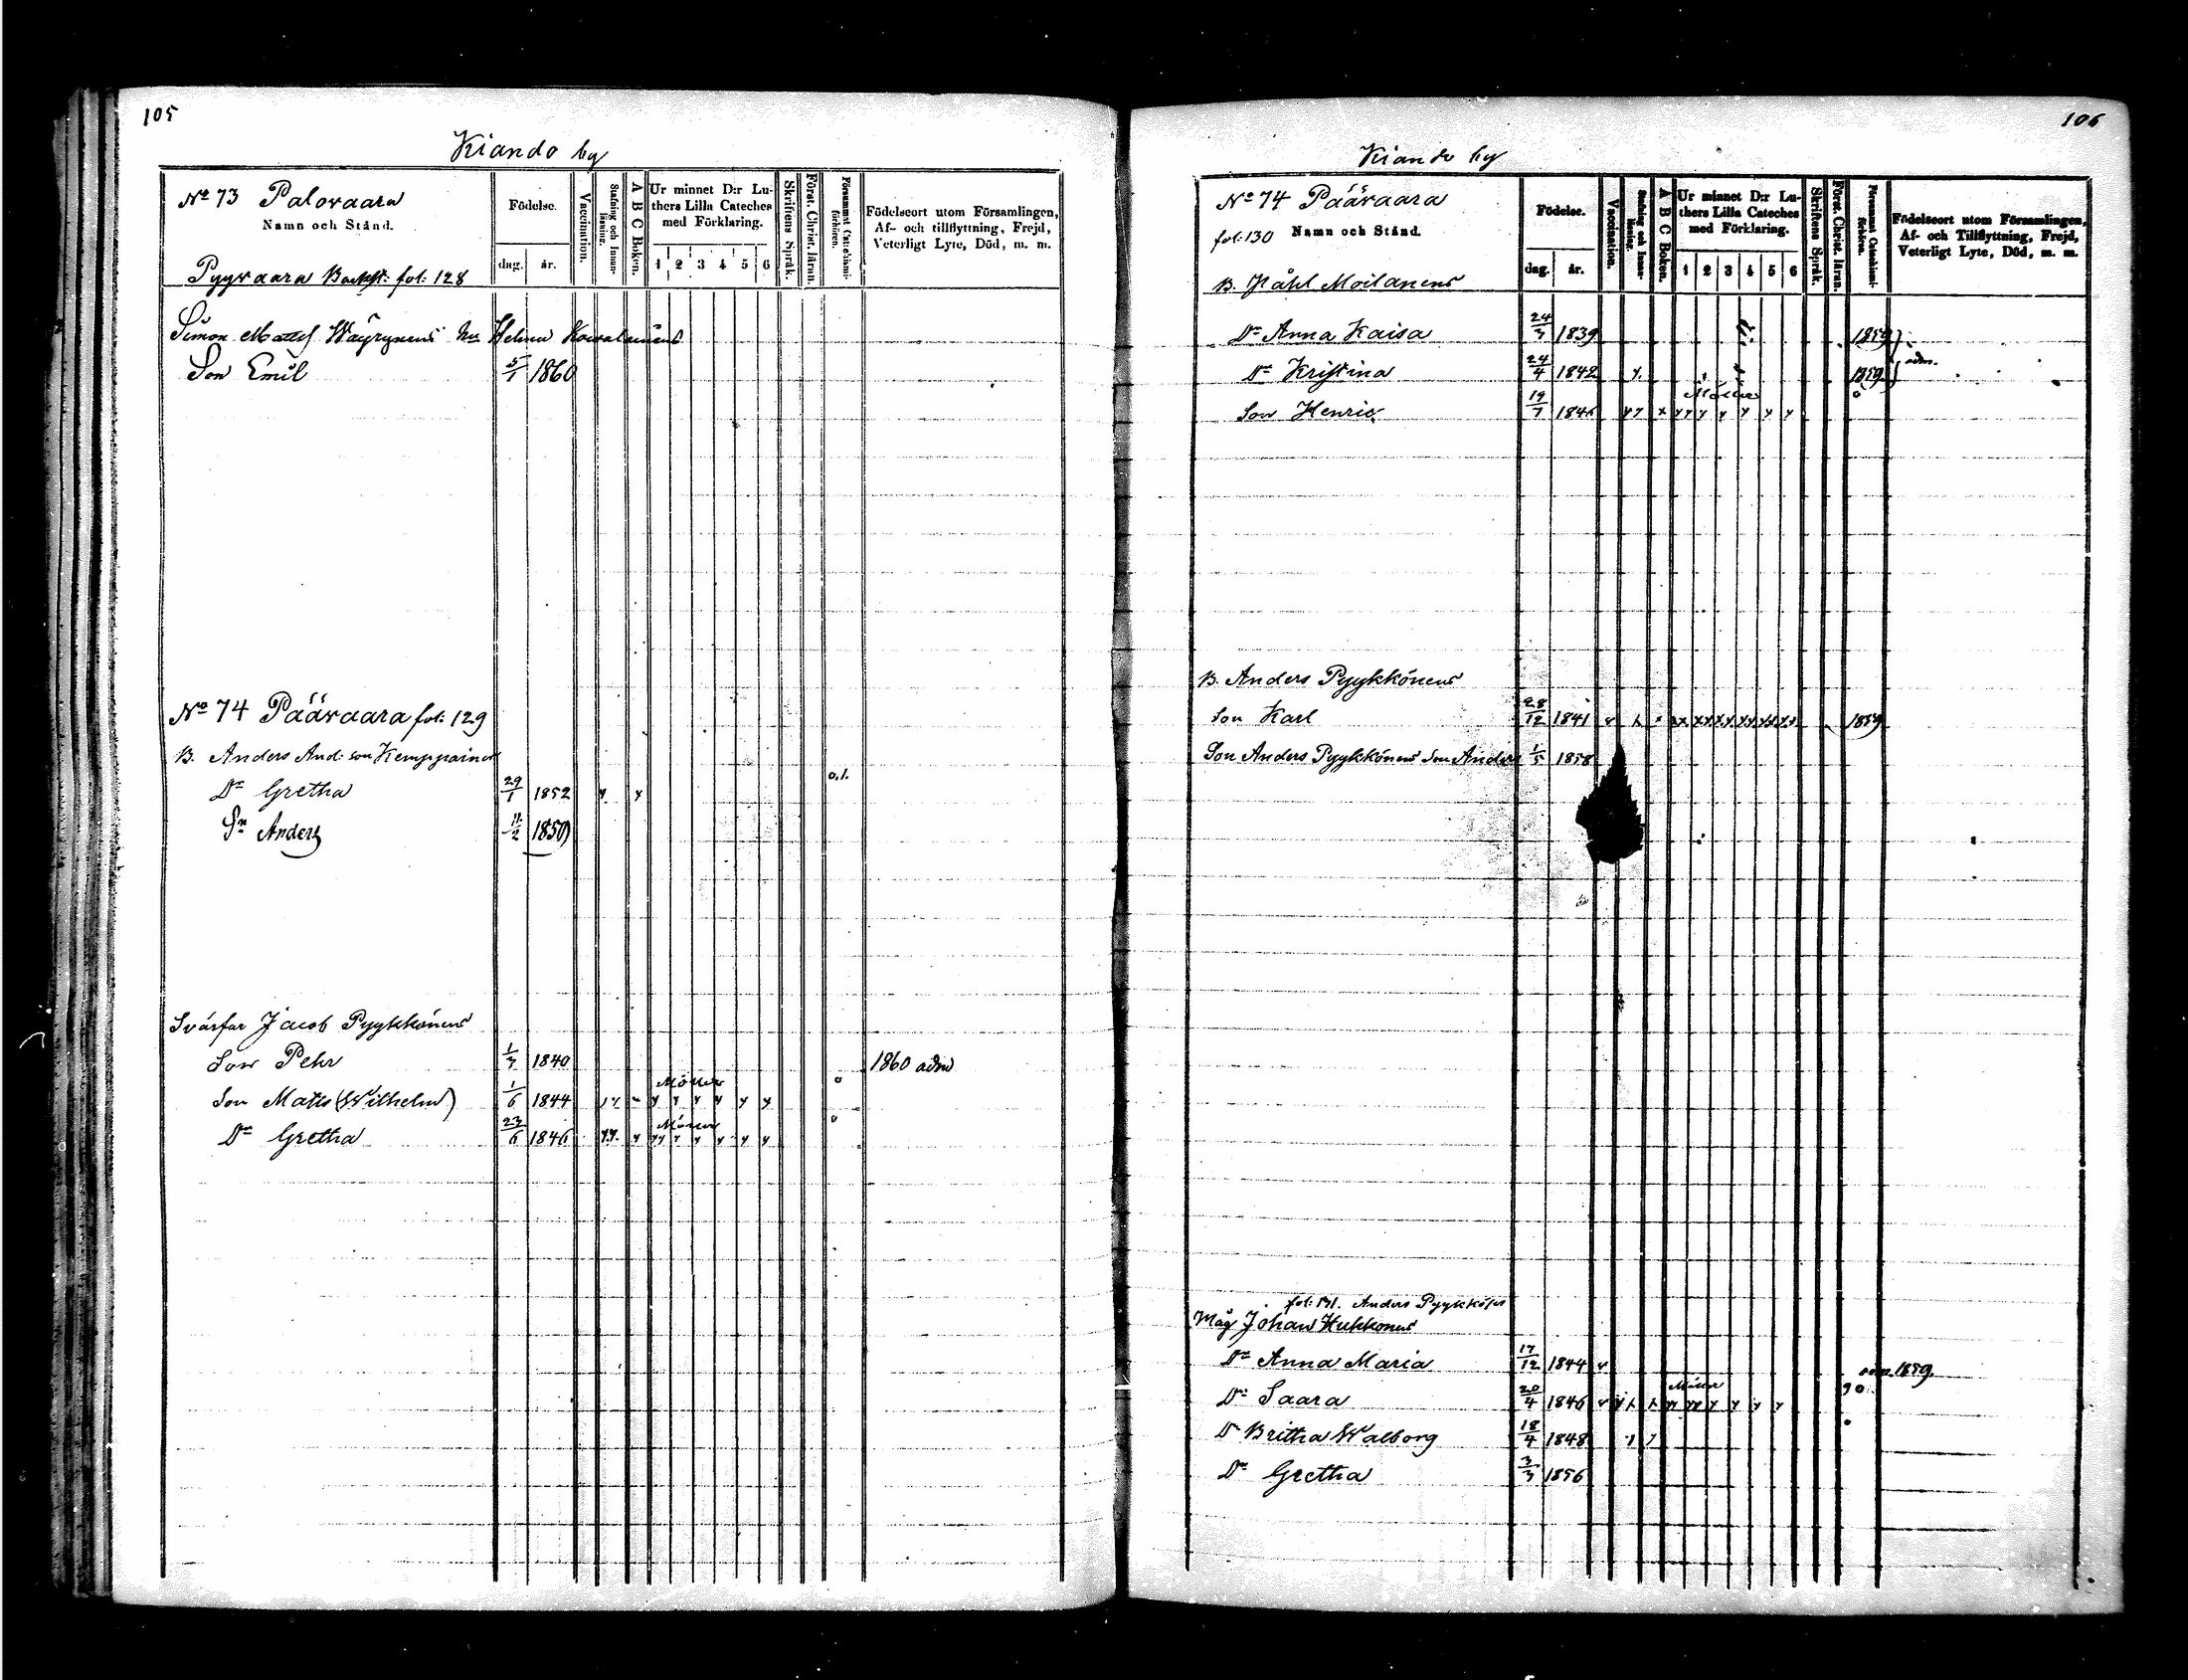 105
Kiando by
No 73 Palovaara
Namn och Stånd.
Födelse.
dag. år.
Vaccination.
Stafning och Innanläsning.
A B C Boken.
Ur minnet D:r Luthers Lilla Cateches med Förklaring.
1 2 3 4 5 6
Skriftens Språk.
Först. Christ. läran.
Försummat Catechismiförhören.
Födelseort utom Församlingen, Af- och tillflyttning, Frejd, Veterligt Lyte, Död, m. m.
Pyyvaara fol: 128
Simon Matts Wäyrynens
Son Emil 5/1 1860
No 74 Päävaara fol: 129
B. Anders And: son Kemppainens
Dr Gretha 29/1 1852 x x 0.1.
Sn Anders 11/2 1850
Svärfar Jacob Pyykkönens
Son Pehr 1/3 1840 1860 adm
Son Matts (Wilhelm) 1/6 1844
Dr Gretha 23/6 1846
106
Kiando by
No 74 Päävaara
fol: 130 Namn och Stånd.
Födelse.
dag. år.
Vaccination.
Stafning och Innanläsning.
A B C Boken.
Ur minnet D:r Luthers Lilla Cateches med Förklaring.
1 2 3 4 5 6
Skriftens Språk.
Först. Christ. läran.
Försummat Catechismiförhören.
Födelseort utom Församlingen, Af- och Tillflyttning, Frejd, Veterligt Lyte, Död, m. m.
B. Påhl Moilanens
Dr Anna Kaisa 24/3 1839 1859
adm.
Dr Kristina 24/4 1842 x 1859
Son Henric 19/7 1846
B. Anders Pyykkönens
Son Karl 28/12 1841 1859
Son Anders Pyykkönens Son Anders 1/5 1858
fol: 131. Anders Pyykkös
Måg Johan Hukkonens
Dr Anna Maria 17/12 1844 x 1859.
Dr Saara 20/4 1846
Dr Britha Walborg 18/4 1848
Dr Gretha 3/3 1856